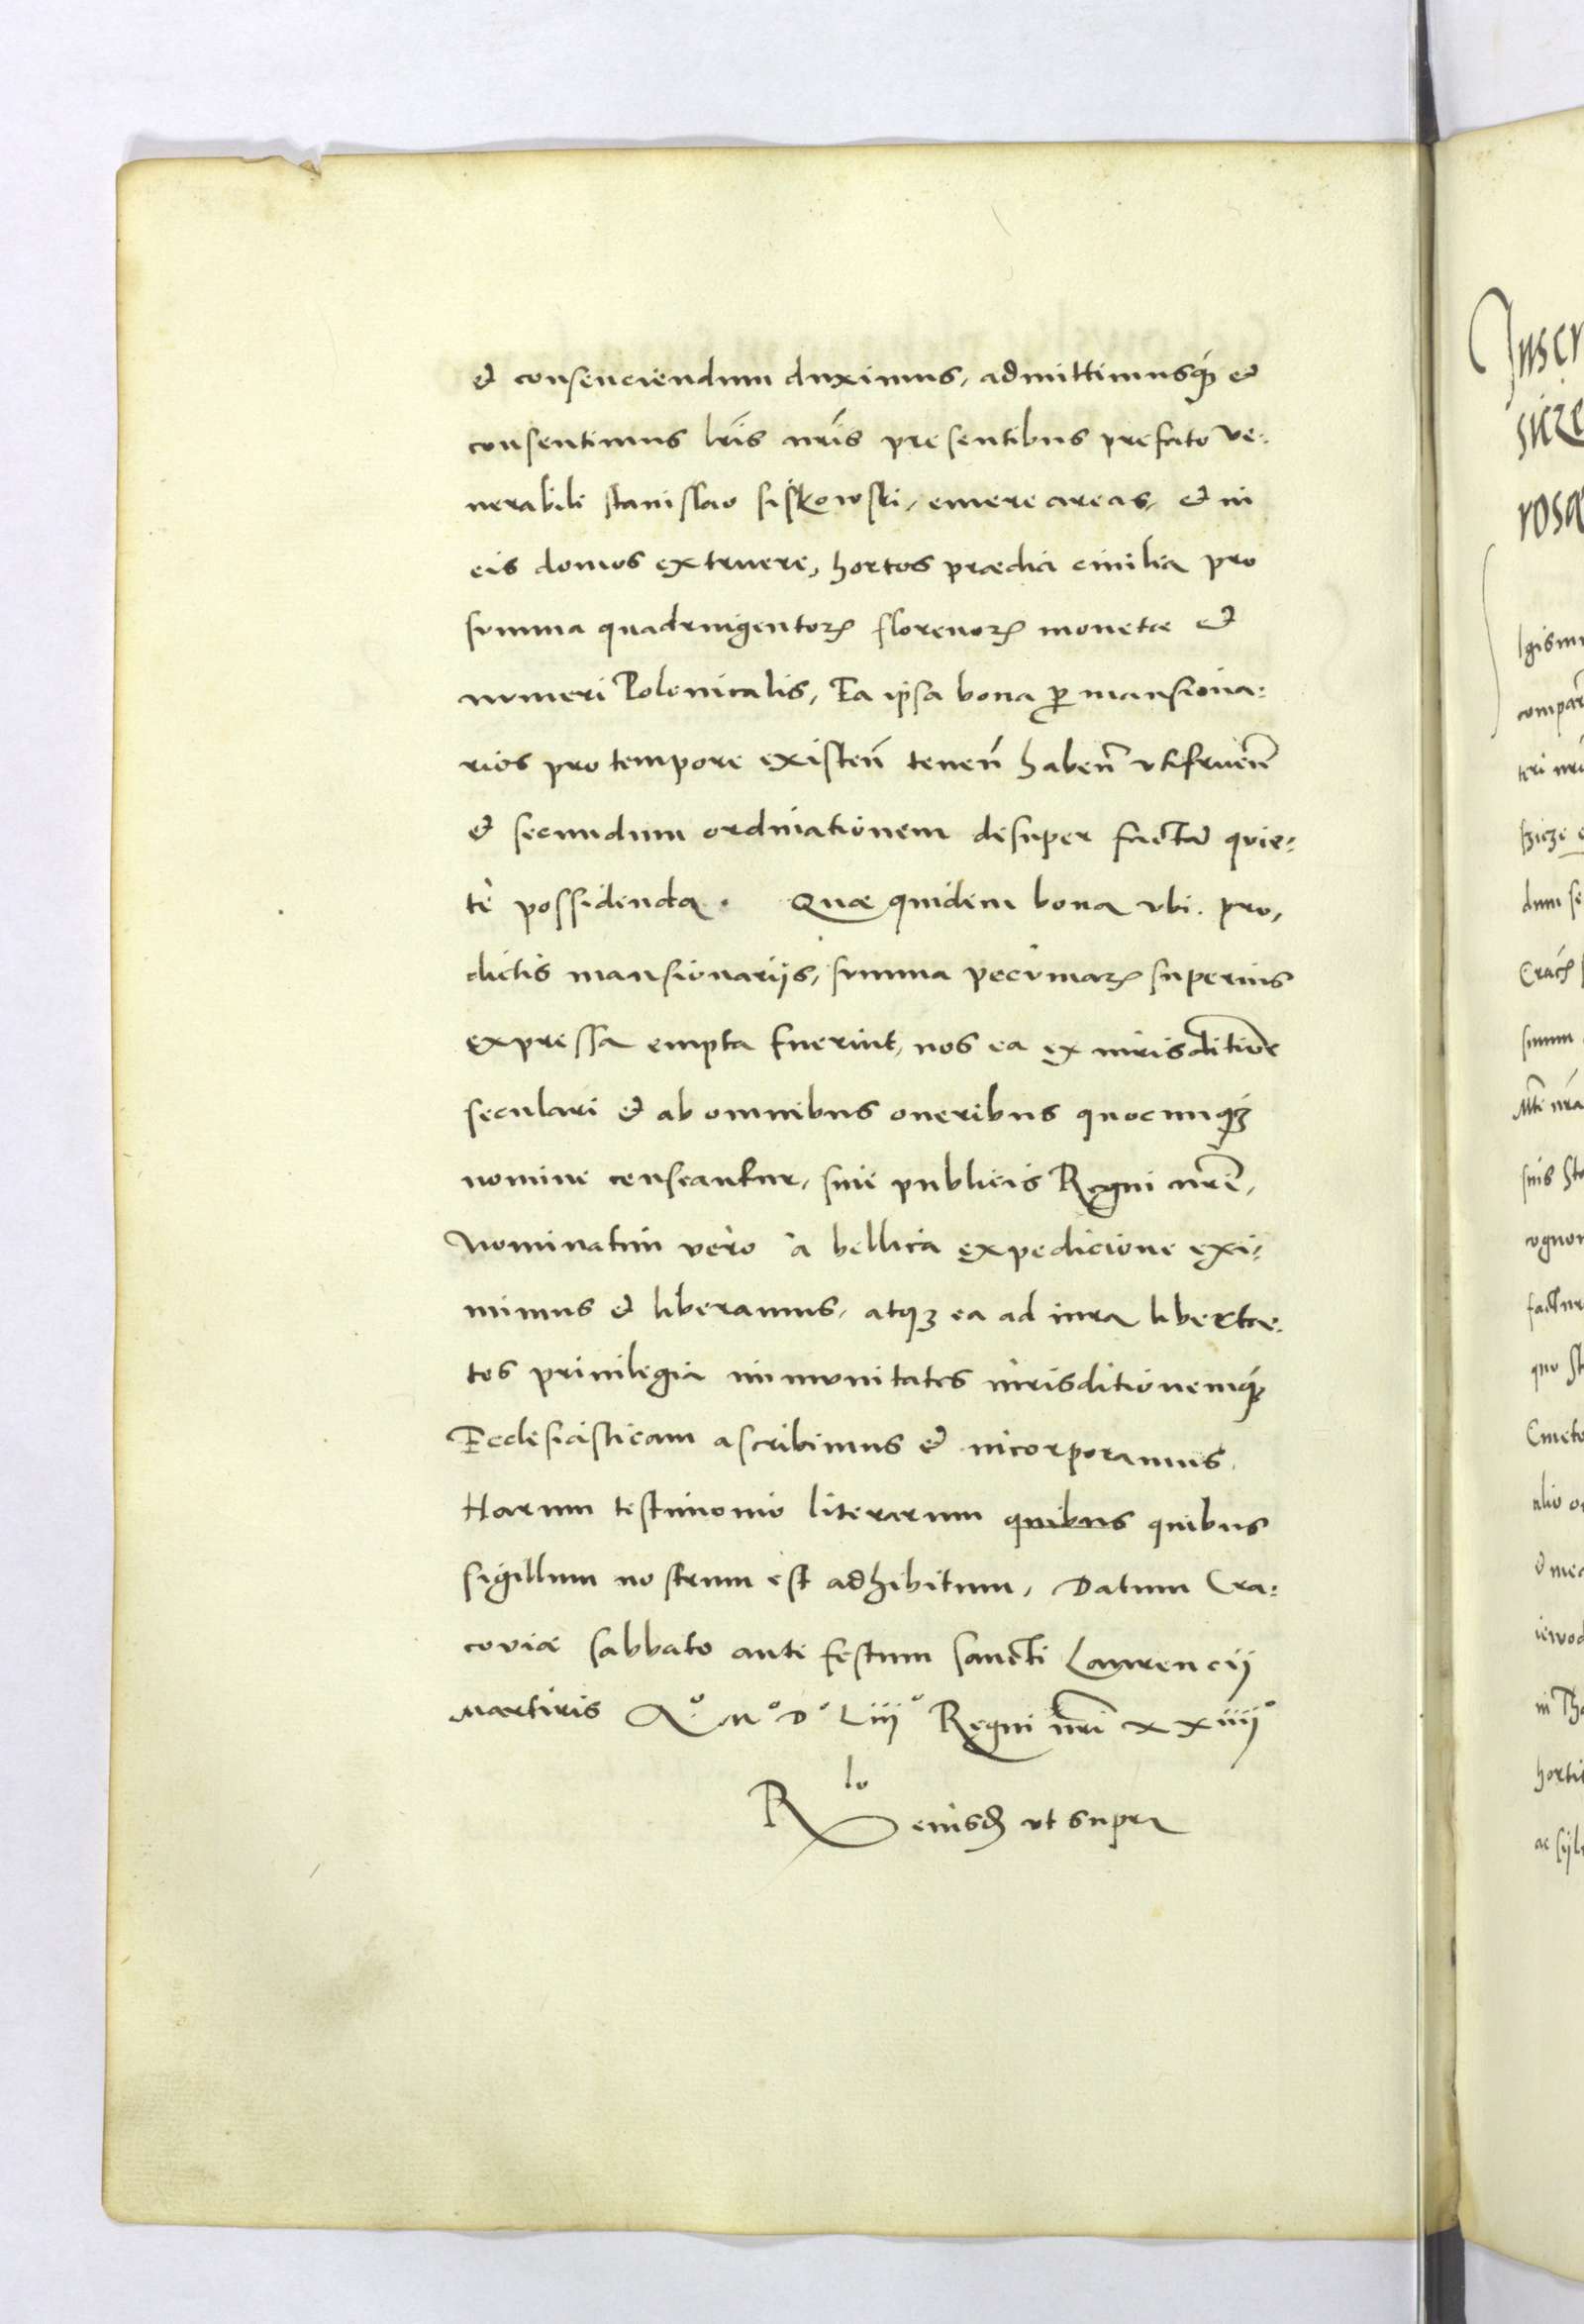 et consenciendum duximus, admittimusq́ꝫ et
consentimus lr̃is nr̃is presentibus prefato ve:
nerabili stanislao siskowski, emere areas, et in
eis domos extruere, hortos prædia civilia pro
summa quadringentorꝫ florenorꝫ monetæ et
numeri Polonicalis, Ea ipsa bona ꝑ mansiona:
rios pro tempore existen̄ tenen̄ haben̄ utifruen̄
et secundum ordinationem desuper factā quie:
tè possidenda. Quæ quidem bona ubi. pro,
dictis mansionarijs, summa pecuniarꝫ superius
expressa empta fuerint, nos ea ex iurisditione
seculari et ab omnibus oneribus quocunqꝫ
nomine censeantur, sive publicis Regni nr̃i,
Nominatim vero à bellica expedicione exi:
mimus et liberamus, atqꝫ ea ad iura liberta:
tes privilegia immunitates iurisditionemqꝫ
Ecclesiasticam ascribimus et incorporamus.
Harum testimonio literarum quibus quibus
sigillum nostrum est adhibitum, Datum Cra:
coviæ sabbato ante festum sancti Laurencij
Martiris Aº. Mº Dº Liijº Regni nr̃i xxiiijº
R lo eiusdꝫ ut supra
Inscr
size
rosa
Igism
compar
teri nr̃i
szicze
dum se
Crac̄
summ
Mti nr̃a
suis
cognom
factur
quo st
Cmeto
alio
et mea
iewod
in Th
horti
ac syl